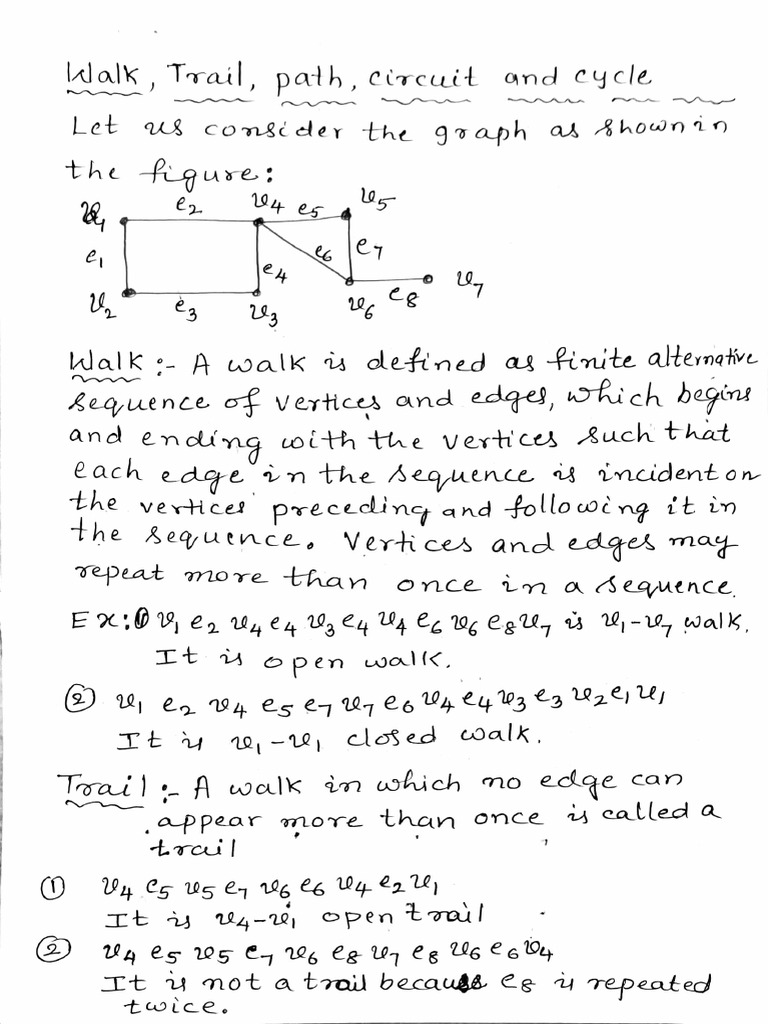 Walk, Trail, path, circuit and cycle
Let us consider the graph as shown in
the figure:
v1 e2 v4 e5 v5
e1 e4 e6 e7
v2 e3 v3 v6 e8 v7
Walk :- A walk is defined as finite alternative
sequence of vertices and edges, which begins
and ending with the vertices such that
each edge in the sequence is incident on
the vertices preceding and following it in
the sequence. Vertices and edges may
repeat more than once in a sequence.
Ex: ① v1 e2 v4 e4 v3 e4 v4 e6 v6 e8 v7 is v1-v7 walk.
It is open walk.
② v1 e2 v4 e5 e7 v7 e6 v4 e4 v3 e3 v2 e1 v1
It is v1-v1 closed walk.
Trail :- A walk in which no edge can
appear more than once is called a
trail
① v4 e5 v5 e7 v6 e6 v4 e2 v1
It is v4-v1 open trail
② v4 e5 v5 e7 v6 e8 v7 e8 v6 e6 v4
It is not a trail because e8 is repeated
twice.